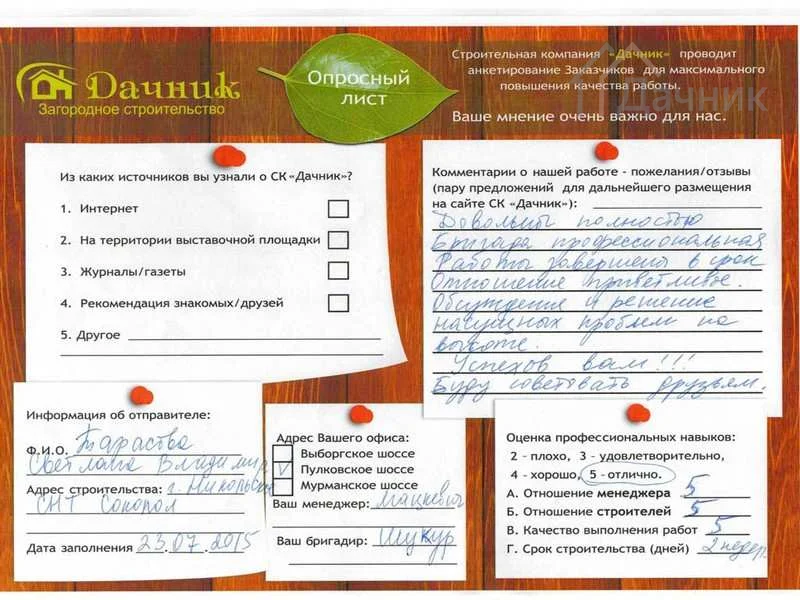 Дачник
Загородное строительство
Опросный
лист
Строительная компания «Дачник» проводит
анкетирование Заказчиков для максимального
повышения качества работы.
Ваше мнение очень важно для нас.
Дачник
Из каких источников вы узнали о СК «Дачник»?
1. Интернет
2. На территории выставочной площадки
3. Журналы/газеты
4. Рекомендация знакомых/друзей
5. Другое
Комментарии о нашей работе - пожелания/отзывы
(пару предложений для дальнейшего размещения
на сайте СК «Дачник»):
Довольны полностью
Бригада профессиональная
Работы завершены в срок
Отношение приветливое.
Обсуждение и решение
насущных проблем на
высоте.
Успехов вам!!!
Буду советовать друзьям.
Информация об отправителе:
Ф.И.О.
Светлана Владимир
Адрес строительства: г. Никольское
СНТ
Дата заполнения 23.07.2015
Адрес Вашего офиса:
Выборгское шоссе
Пулковское шоссе
Мурманское шоссе
Ваш менеджер: Мацкевич
Ваш бригадир: Шукур
Оценка профессиональных навыков:
2 - плохо, 3 - удовлетворительно,
4 - хорошо, 5 - отлично.
А. Отношение менеджера 5
Б. Отношение строителей 5
В. Качество выполнения работ 5
Г. Срок строительства (дней) 2 недел.